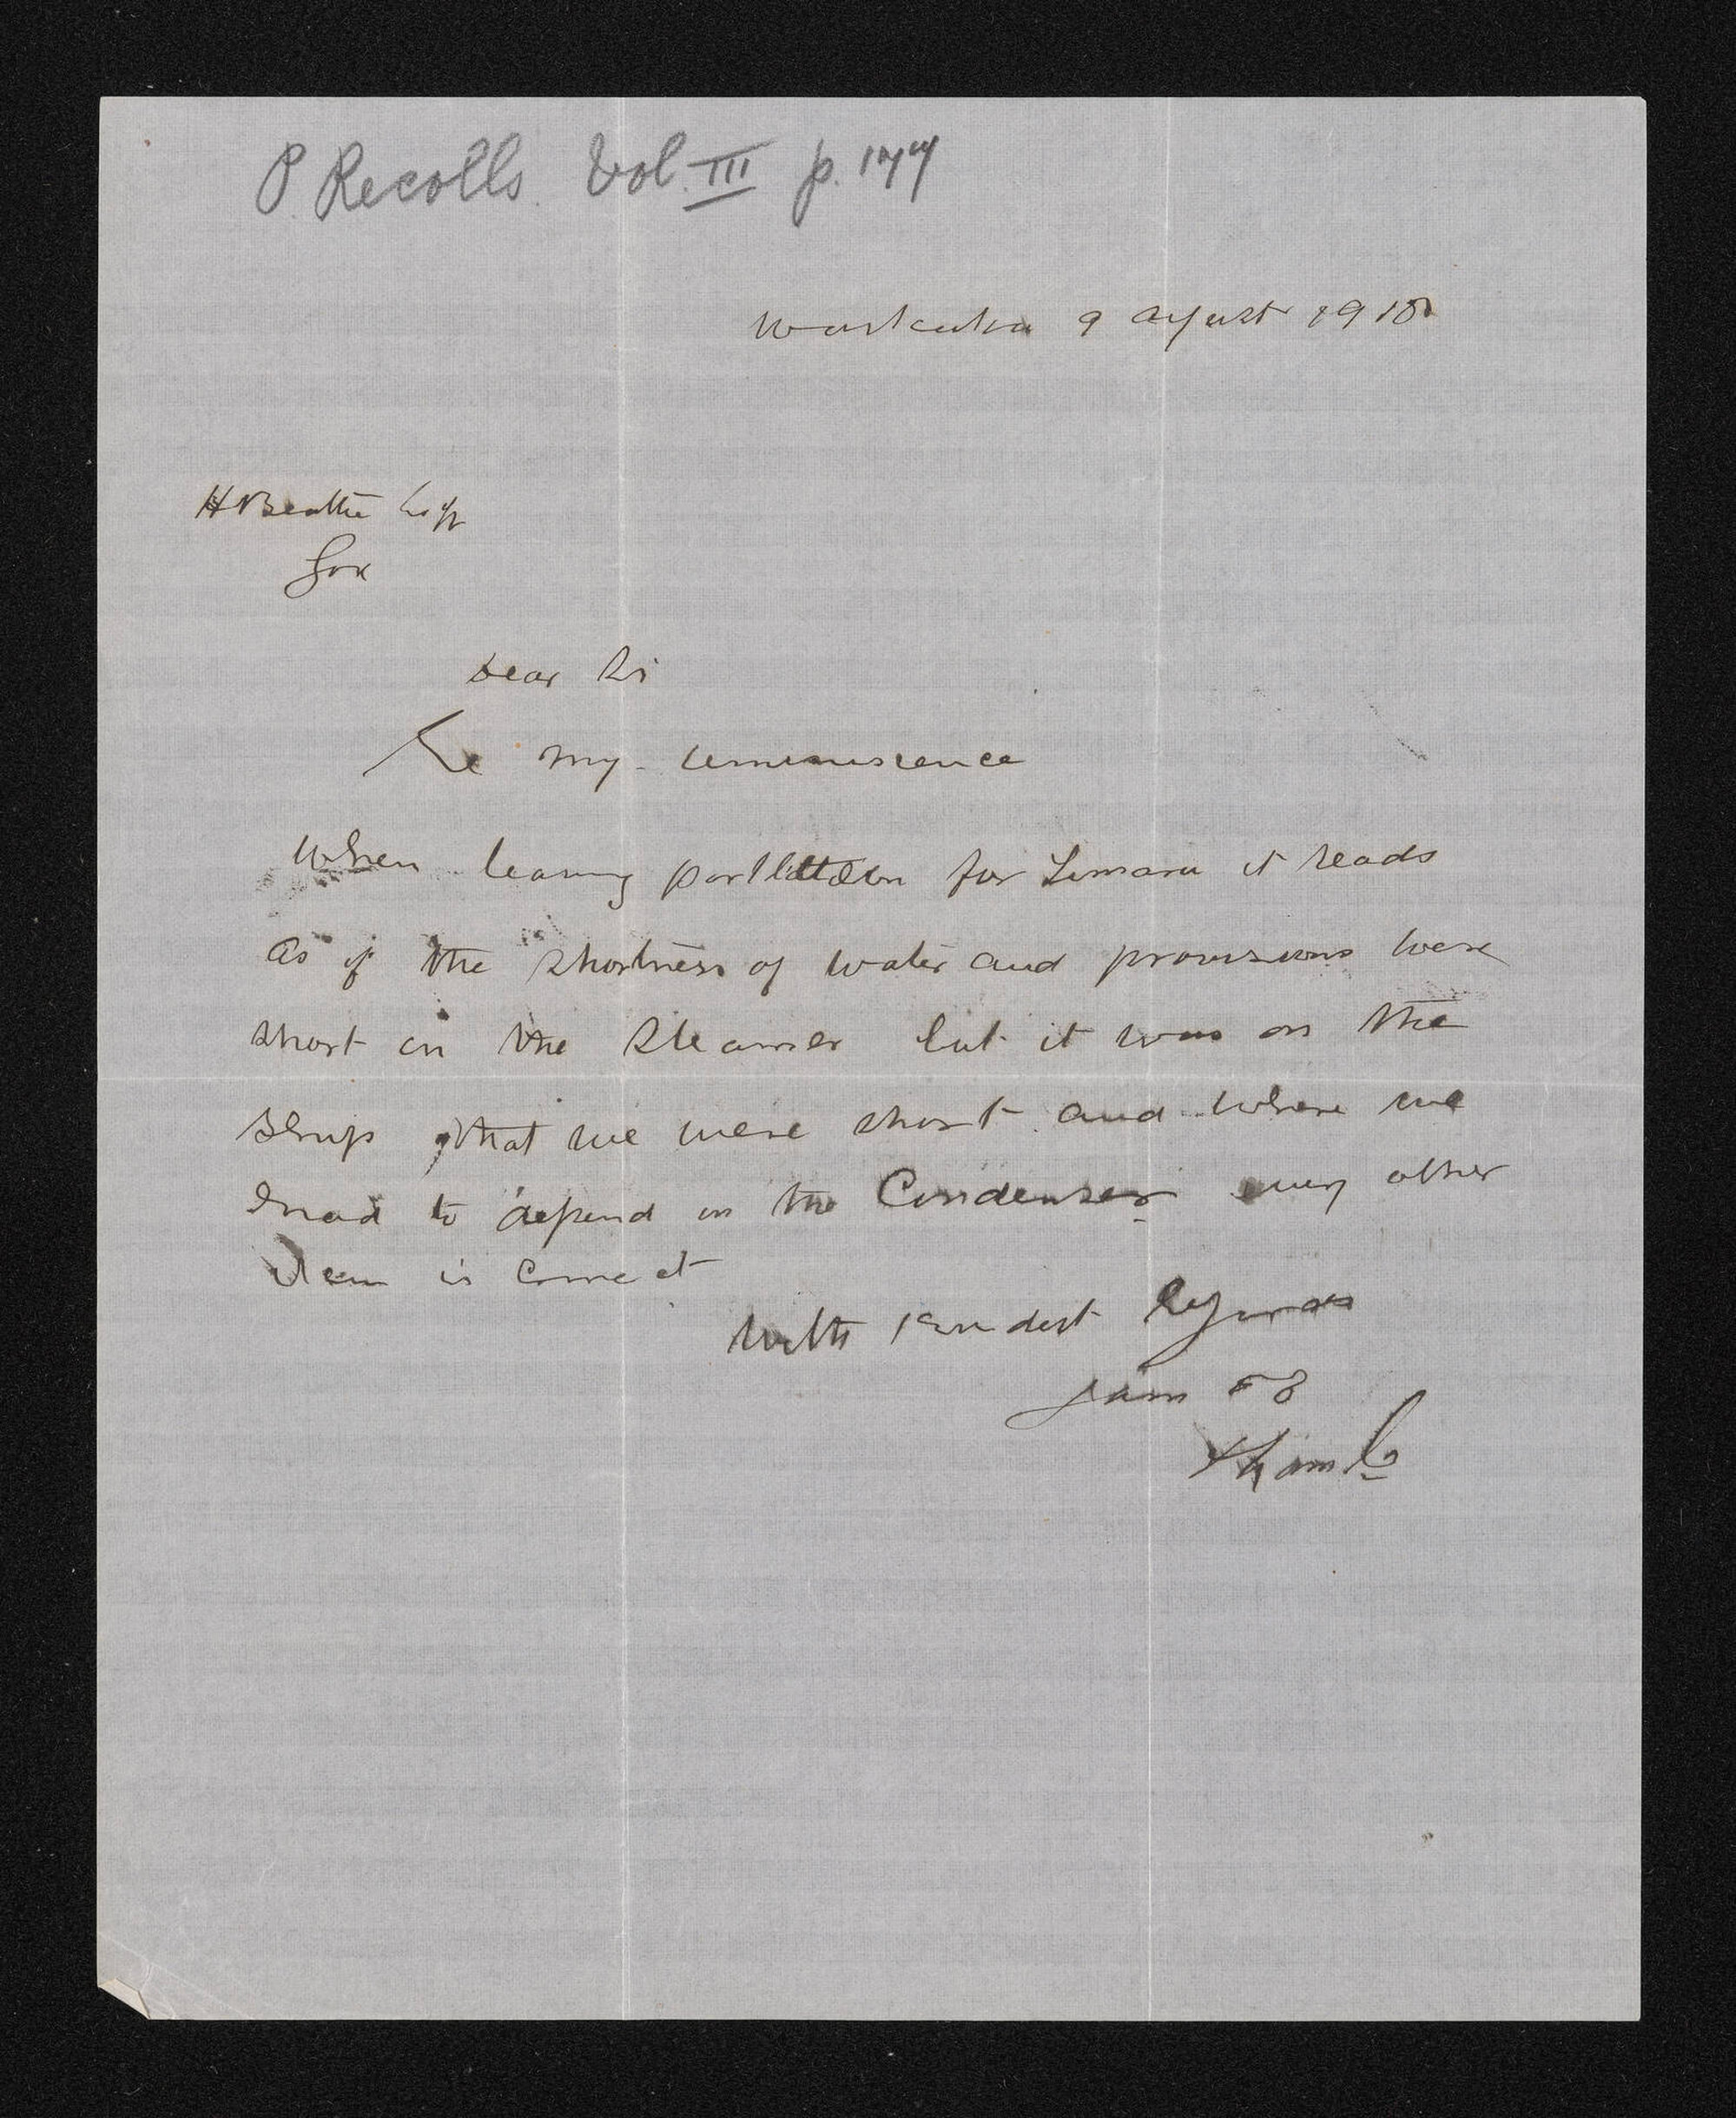 P. Recolls. Vol. III p. 177
9 August 1918
H Beattie Esqr
Gore
Dear Sir
Re my reminiscence
When leaving for Timaru it reads
as if the shortness of water and provisions were
short in the Steamer but it was on the
Ship that we were short and where we
had to depend on the Condenser every other
item is correct
With Kindest Regards
I am